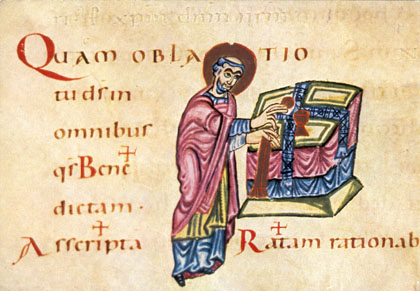 QUAM OBLATIO
tu dſ in
omnibus
qſ Bene✝
dictam.
Aſſcripta✝ Ratam✝ rationab